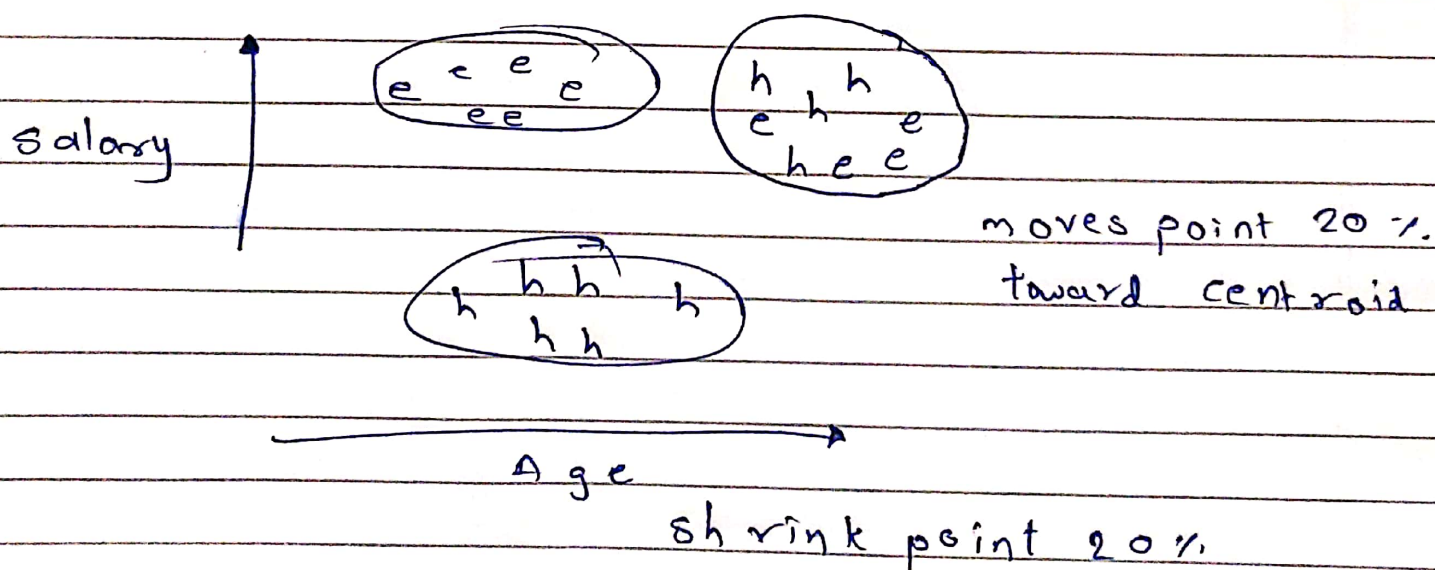 e e e e
e e
h h
e h e
h e e
salary
moves point 20 %.
toward centroid
h h h h
h h
Age
shrink point 20 %.